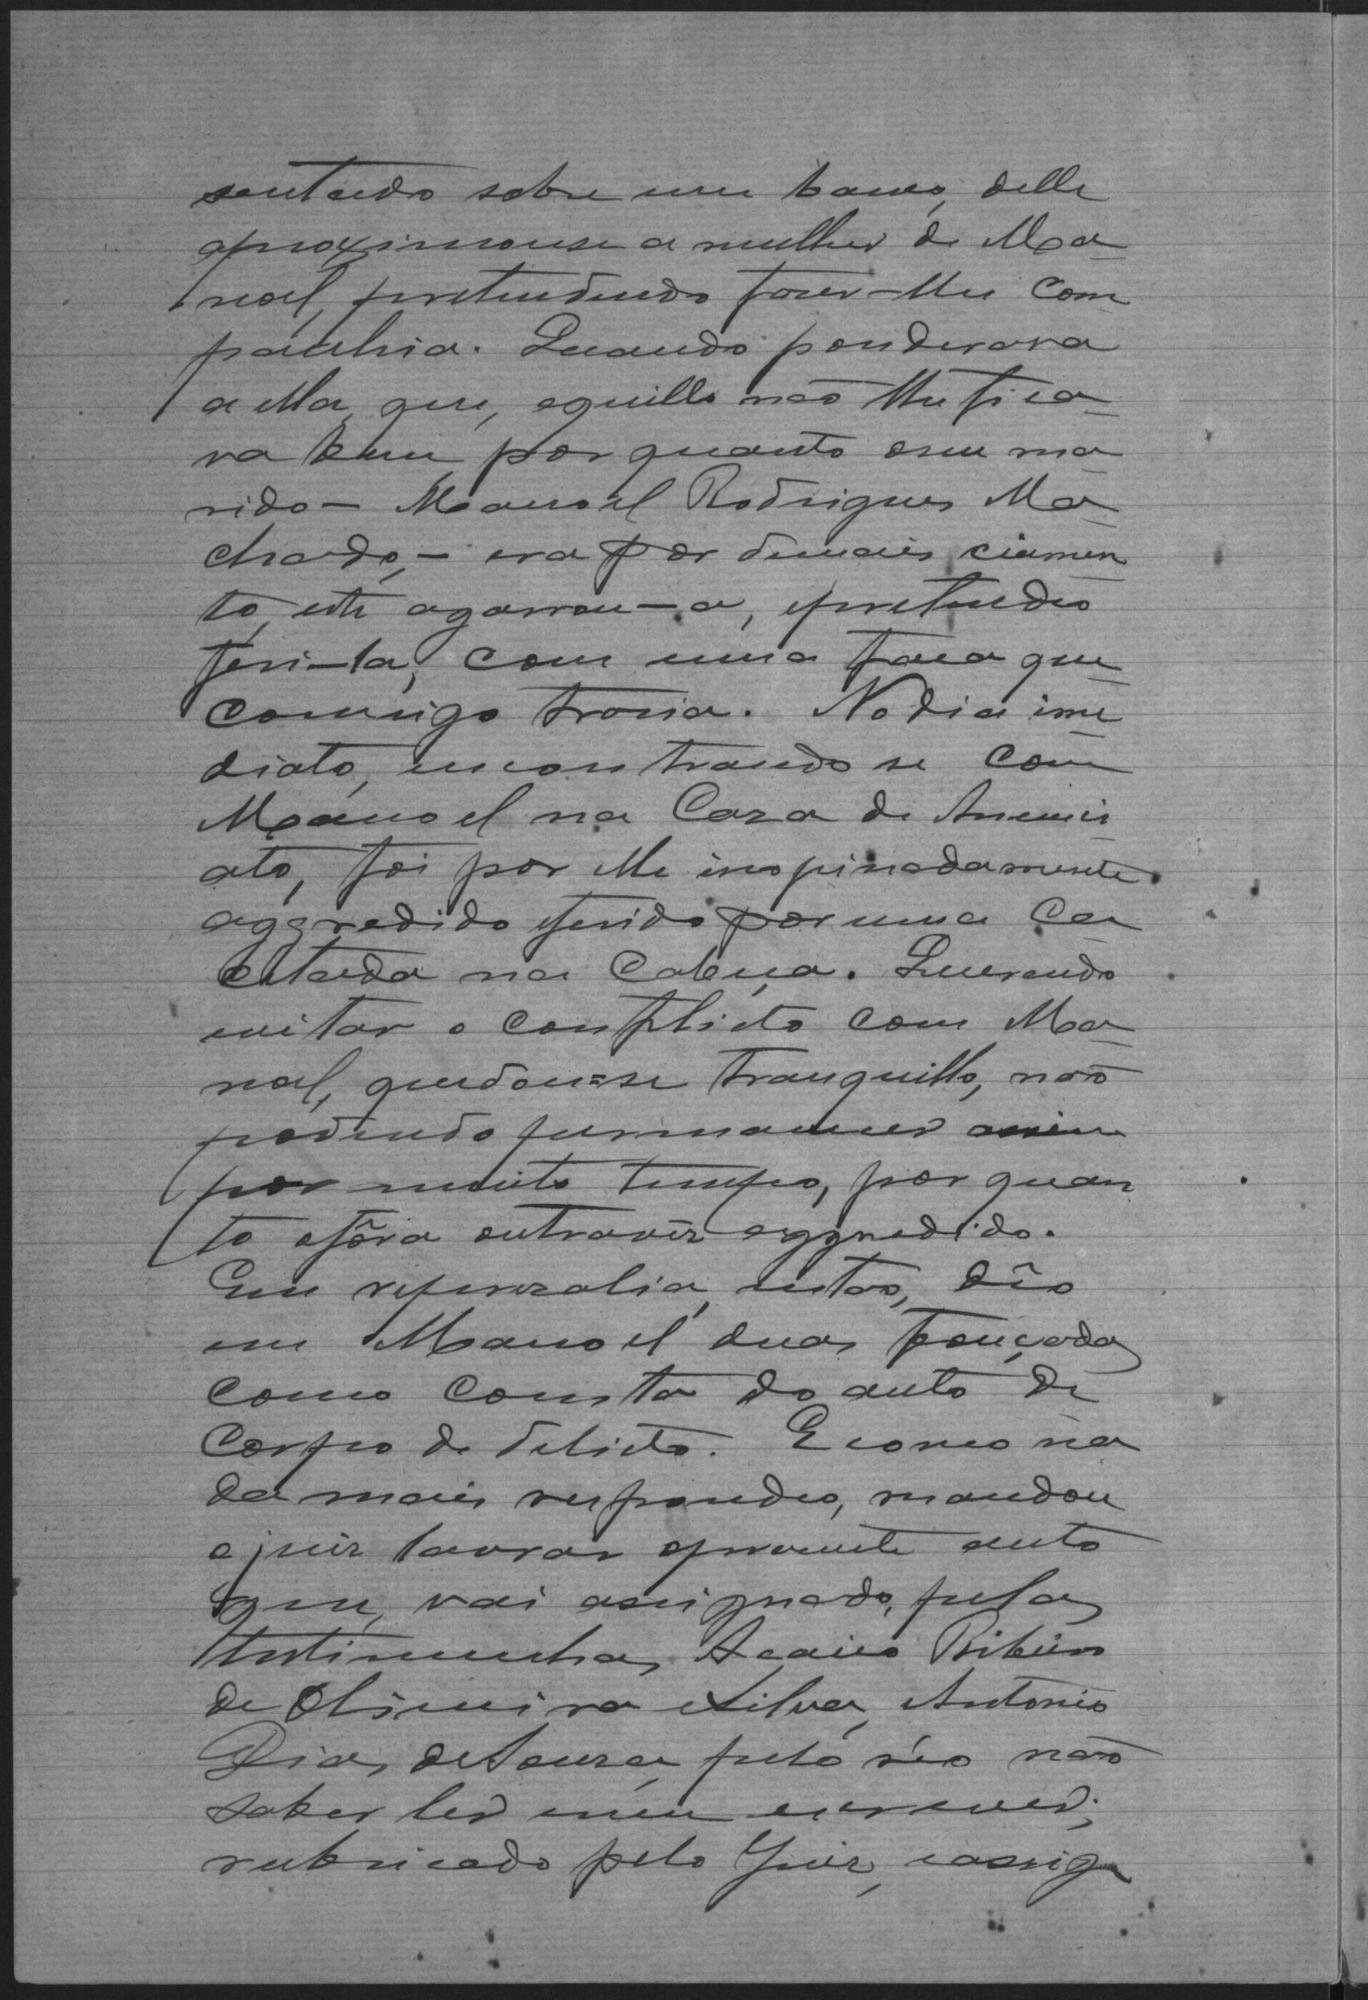 sentado sobre um banco, delle
aproximouse a mulher de Ma-
noel, pretendendo fazer-lhe com
panhia. Quando ponderava
a ella, que, aquillo não lhe fica-
va bem, por quanto o seu ma
rido - Manoel Rodrigues Ma-
chado, - era por demais ciumen
to, este agarrou-a, e pretendeo
feri-la, com uma faca que
comsigo trazia. No dia ime
diato, encontrando se com
Manoel na Caza de
ato, foi por elle inopinadamente
aggredido e ferido por uma ca
cetada na Cabeça. Querendo
evitar o conflicto com Ma-
noel, quedou=se tranquillo, não
podendo permanecer assim
por muito tempo, por quan
to o fôra outra vez aggredido.
Em reprezalia, então, dêo
em Manoel duas fouçadas
como consta do auto de
Corpo de delicto. E como na
da mais respondeo, mandou
o juiz lavrar o presente auto
que, vai assignado, pelas
testimunhas, Ribeiro
de Oliveira e Silva, Antonio
Dias de Souza, pelo réo não
saber ler nem escrever;
rubricado pelo Juiz, e assig